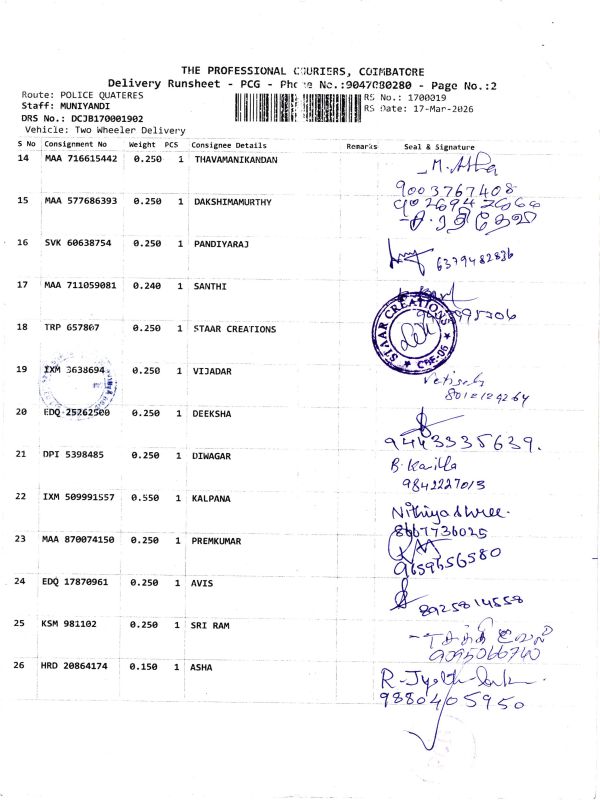 THE PROFESSIONAL COURIERS, COIMBATORE
Delivery Runsheet - PCG - Phone No.:9047030280 - Page No.:2
Route: POLICE QUATERES
RS No.: 1700019
Staff: MUNIYANDI
RS Date: 17-Mar-2026
DRS No.: DCJB170001902
Vehicle: Two Wheeler Delivery
S No Consignment No Weight PCS Consignee Details Remarks Seal & Signature
14 MAA 716615442 0.250 1 THAVAMANIKANDAN
9003767408
15 MAA 577686393 0.250 1 DAKSHIMAMURTHY
16 SVK 60638754 0.250 1 PANDIYARAJ
6379482836
17 MAA 711059081 0.240 1 SANTHI
18 TRP 657807 0.250 1 STAAR CREATIONS
STAAR CREATIONS
CBE-06
19 IXM 3638694 0.250 1 VIJADAR
20 EDQ 25262500 0.250 1 DEEKSHA
9443335639.
21 DPI 5398485 0.250 1 DIWAGAR
B. Kavitha
9842227013
22 IXM 509991557 0.550 1 KALPANA
Nithiya shree.
8667736025
23 MAA 870074150 0.250 1 PREMKUMAR
9659656580
24 EDQ 17870961 0.250 1 AVIS
8925814558
25 KSM 981102 0.250 1 SRI RAM
26 HRD 20864174 0.150 1 ASHA
9880405950